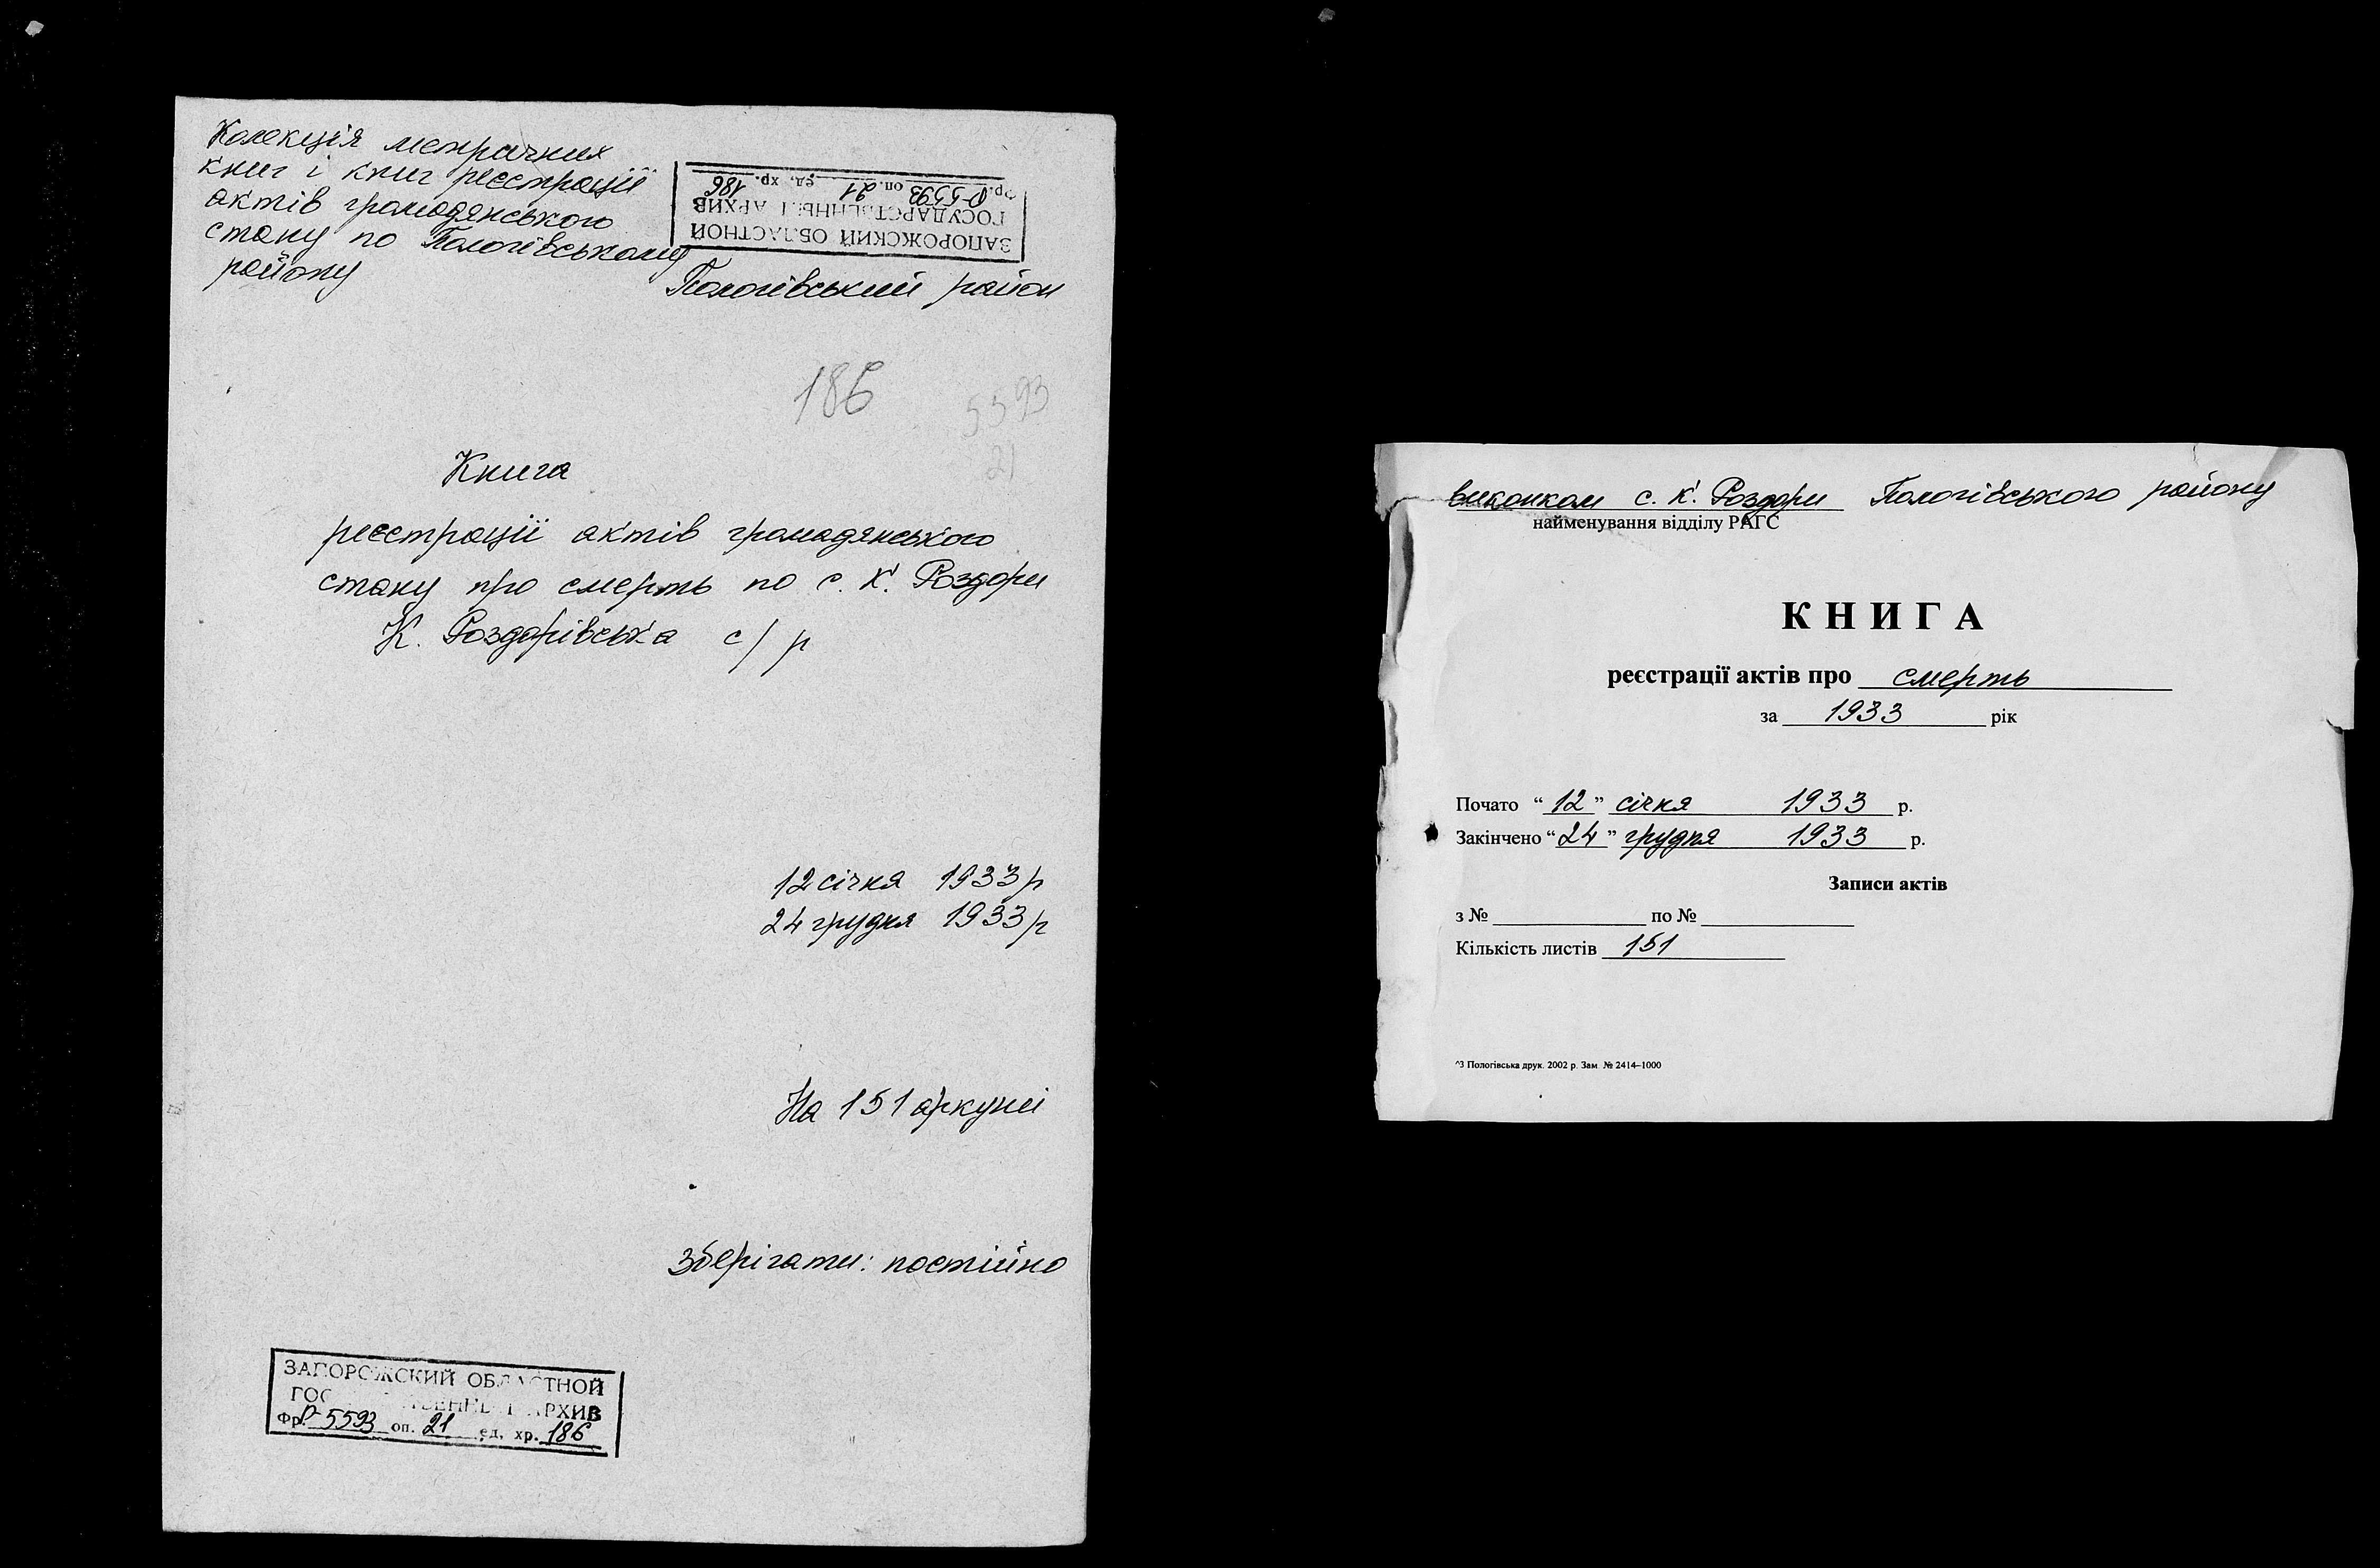 Колекція метричних
книг і книг реєстрації
актів громадянського
стану по Пологівському
району
ЗАПОРОЖСКИЙ ОБЛАСТНОЙ
ГОСУДАРСТВЕННЫЙ АРХИВ
Фр. Р-5593 оп. 21 ед. хр. 186
Пологівський район
186
5593
21
Книга
реєстрації актів громадянського
стану про смерть по с. К. Роздори
К. Роздорівська с/р
12 січня 1933 р
24 грудня 1933 р
На 151 аркуші
Зберігати: постійно
ЗАПОРОЖСКИЙ ОБЛАСТНОЙ
ГОСУДАРСТВЕННЫЙ АРХИВ
Фр. Р-5593 оп. 21 ед. хр. 186
виконком с. К. Роздори Пологівського району
найменування відділу РАГС
КНИГА
реєстрації актів про смерть
за 1933 рік
Почато “12” січня 1933 р.
Закінчено “24” грудня 1933 р.
Записи актів
з № по №
Кількість листів 151
^З Пологівська друк. 2002 р. Зам. № 2414–1000